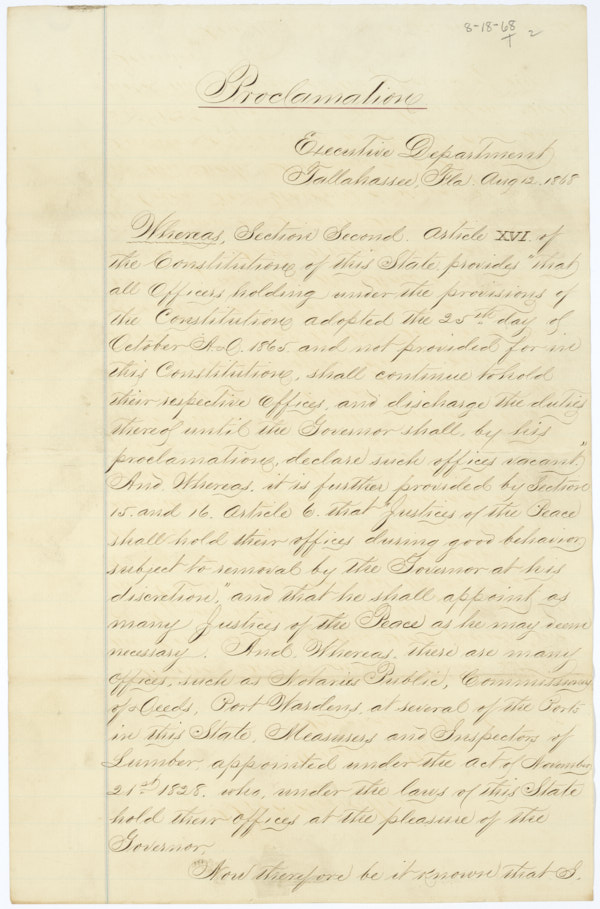 8-18-68
2
Proclamation
Executive Department
Tallahassee, Fla. Aug 12. 1868
Whereas, Section Second. Article XVI. of
the Constitution, of this State, provides "that
all Officers holding under the provisions of
the Constitution, adopted the 25th day of
October A.D. 1865. and not provided for in
this Constitution, shall continue to hold
their respective Offices, and discharge the duties
thereof until the Governor shall, by his
proclamation, declare such offices vacant."
And, Whereas, it is further provided by Section
15. and 16. Article 6. that "Justices of the Peace
shall hold their offices during good behavior,
subject to removal by the Governor at his
discretion," and that he shall appoint as
many Justices of the Peace as he may deem
necessary. And, Whereas, there are many
Offices, such as Notaries Public, Commissioners
of Deeds, Port Wardens, at several of the Ports
in this State, Measurers and Inspectors of
Lumber, appointed under the act of November
21st 1828. who, under the laws of this State
hold their offices at the pleasure of the
Governor.
Now therefore be it known that I.